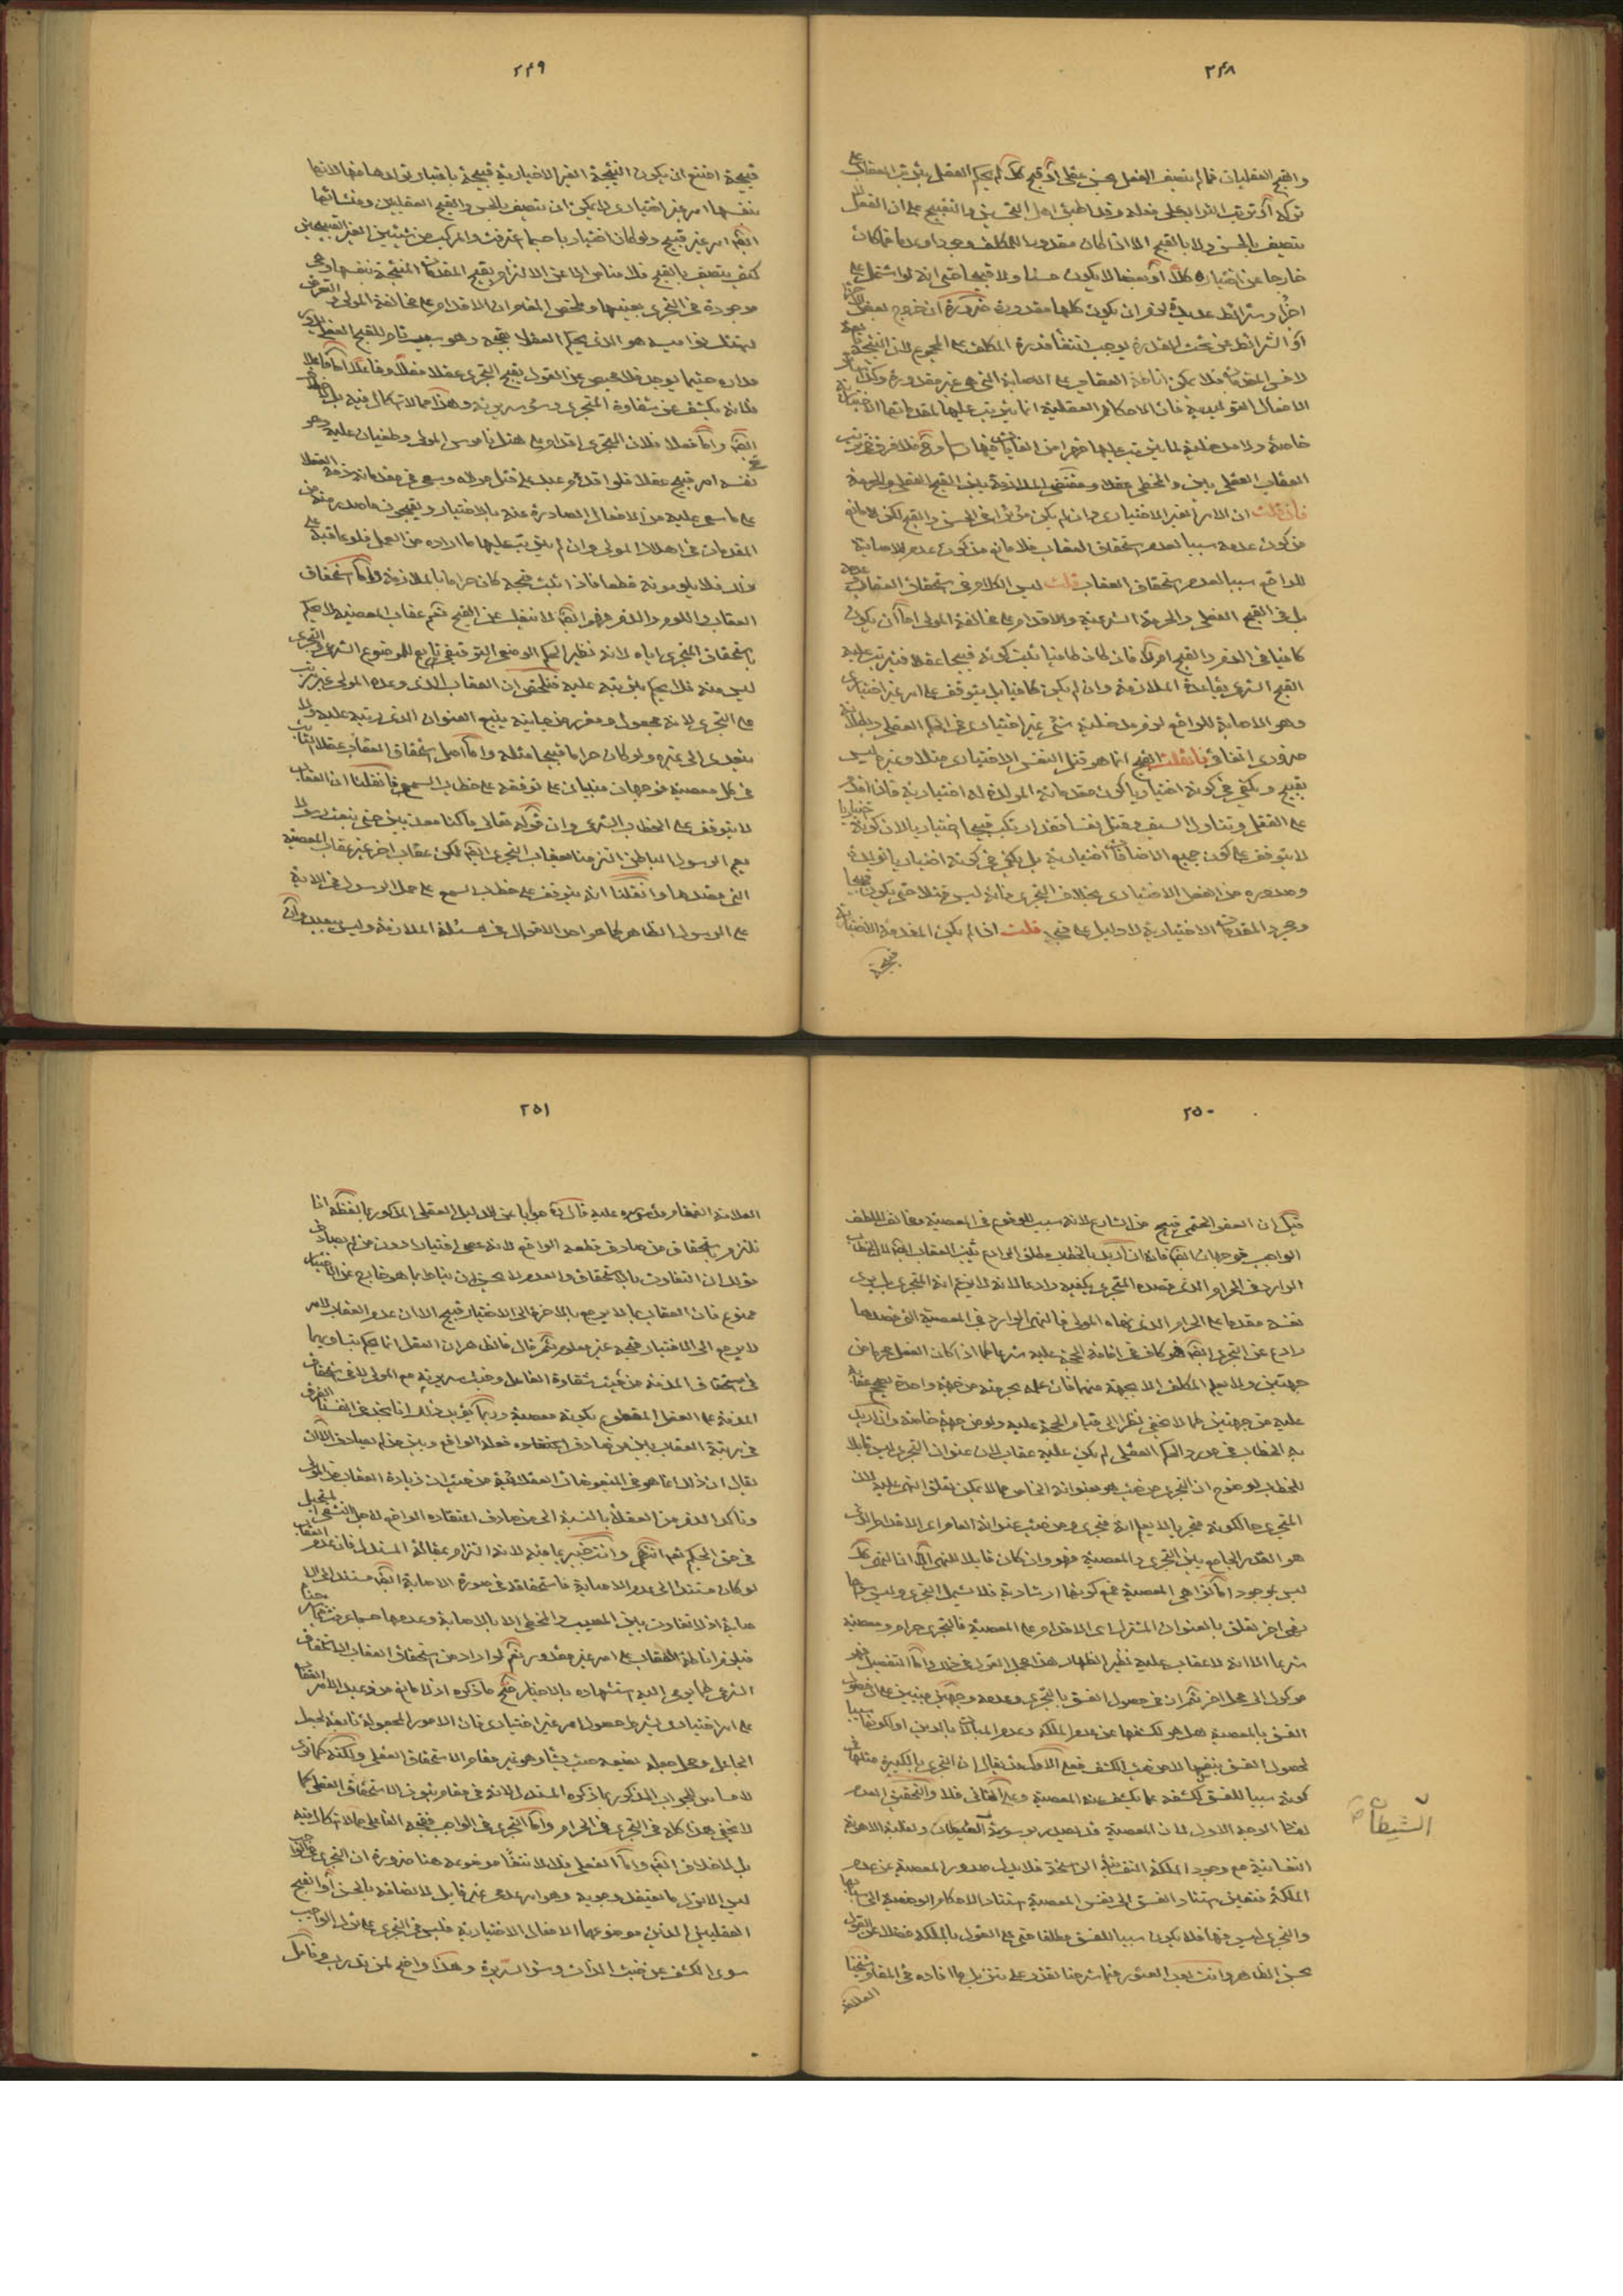 ٢٤٨
والقبح العقليان فما لم يتصف الفعل بحسن عقلى أو قبح كك لم يحكم العقل بترتب العقاب على
تركه أو ترتب الثواب على فعله وقد اطبق اهل التحسين والتقبيح على ان الفعل لا
يتصف بالحسن ولا بالقبح الا اذا كان مقدورا للمكلف وجودا وعدما فما كان
خارجا عن اختياره كلا أو بعضا لا يكون حسنا ولا قبيحا حتى انه لو اشتمل على
اجزاء وشرائط عديدة لزم ان يكون كلها مقدورة ضرورة ان خروج بعض الاجزاء
أو الشرائط عن تحت القدرة يوجب انتفاء قدرة المكلف على المجموع لان النتيجة تابعة
لاخس المقدمات فلا يمكن اناطة العقاب على الاصابة التى هى غير مقدورة وكذا
الافعال التوليدية فان الاحكام العقلية انما يترتب عليها لمقدماتها الاختيارية
خاصة ولا مدخلية لما يترتب عليها قهرا من الغايات فيها فلا فرق فى ترتب
العقاب العقلى بين والمخطى عقلا ومقتضى الملازمة بين القبح العقلى والحرمة
فان قلت ان الامر الغير الاختيارى وان لم يكن مؤثرا فى الحسن والقبح لكن لا مانع
من كون عدمه سببا لعدم استحقاق العقاب فلا مانع من كون عدم الاصابة
للواقع سببا لعدم استحقاق العقاب قلت ليس الكلام فى استحقاق العقاب وعدمه
بل فى القبح العقلى والحرمة الشرعية والاقدام على مخالفة المولى اما ان يكون
كافيا فى الذم والقبح ام لا فان كان كافيا ثبت كونه قبيحا عقلا فيترتب عليه
القبح الشرعى بقاعدة الملازمة وان لم يكن كافيا بل يتوقف على امر غير اختيارى
وهو الاصابة للواقع لزم مدخلية شئ غير اختيارى فى الحكم العقلى وبطلانه
ضرورى اتفاقى فان قلت القبيح انما هو قتل النفس الاختيارى مثلا وغيره ليس
بقبيح ويكفى فى كونه اختياريا كون مقدماته المولدة له اختيارية فان اقدم
على القتل وتناول السيف وقتل نفسا فقد ارتكب قبيحا اختياريا لان كونه اختياريا
لا يتوقف على كون جميع الاضافات اختيارية بل يكفى فى كونه اختياريا تولده
وصدوره من الفعل الاختيارى بخلاف التجرى فانه ليس قتلا حتى يكون قبيحا
ومجرد المقدمات الاختيارية لا دليل على قبحه قلت اذا لم يكن المقدمة الاختيارية
قبيحة
٢٤٩
قبيحة امتنع ان يكون النتيجة الغير الاختيارية قبيحة باعتبار تولدها منها لانها
بنفسها امر غير اختيارى لا يمكن ان تتصف بالحسن والقبح العقليين ومنشائها
ايضا امر غير قبيح ولو كان اختياريا حسبما اعترفت والمركب من شيئين الغير القبيحين
كيف يتصف بالقبح فلا مناص اما عن الالتزام بقبح المقدمات المنتجة بنفسها وهى
موجودة فى التجرى بعينها وملخص المقام ان الاقدام على مخالفة المولى والتعرض
لهتك نواميسه هو الذى يحكم العقلاء بقبحه وهو سبب تام للقبح العقلى يدور
مداره حيثما يوجد فلا محيص عن القول بقبح التجرى عقلا فعلا وفاعلا اما فاعلا
فلانه يكشف عن شقاوة المتجرى وسوء سريرته وهذا مما لا اشكال فيه بل
ايضا واما فعلا فلان التجرى اقدام على هتك ناموس المولى وطغيان عليه وهو
نفسه امر قبيح عقلا فلو اقدم عبد على قتل مولاه وسعى فى مقدماته ذمه العقلاء
على ما سعى عليه من الافعال الصادرة عنه بالاختيار ويقبحون ما صدر منه من
المقدمات فى اهلاك المولى وان لم يترتب عليها ما اراده من العمل فلو عاقبه على
ذلك فلا يلومونه قطعا فاذا ثبت قبحه كان حراما بالملازمة واما استحقاق
العقاب واللوم والذم فهو ايضا لا ينفك عن القبح نعم عقاب المعصية لا حكم
باستحقاق المتجرى اياه لانه نظير الحكم الوضعى التوقيفى تابع للموضوع الشرعى والتجرى
ليس منه فلا يحكم بترتبه عليه فتلخص ان العقاب الذى وعده المولى غير مترتب
على التجرى لانه مجعول ومقرر من جانبه يتبع العنوان الذى رتبه عليه ولا
يتعدى الى غيره ولو كان حراما قبيحا مثله واما اصل استحقاق العقاب عقلا الثابت
فى كل معصية فوجهان مبنيان على توقفه على خطاب السمع فان قلنا ان العقاب
لا يتوقف على الخطاب الشرعى وان قوله تعالى ما كنا معذبين حتى نبعث رسولا
يعم الرسول الباطنى التزمنا بعقاب التجرى ايضا لكن عقاب اخر غير عقاب المعصية
التى قصدها وان قلنا انه يتوقف على خطاب السمع على حمل الرسول فى الاية
على الرسول الظاهر كما هو احد الاقوال فى مسئلة الملازمة وليس ببعيد وان
٢٥٠
قيل ان العفو الحتمى قبيح من الشارع لانه سبب للوقوع فى المعصية ومخالف اللطف
الواجب فوجهان ايضا فانه ان اريد بالخطاب مطلق الرادع ثبت العقاب ايضا لان الخطاب
الوارد فى الحرام الذى قصده المتجرى يكفيه رادعا لانه لا يزعم انه المتجرى بل يرى
نفسه مقدما على الحرام الذى نهاه المولى فالنهى الوارد فى المعصية التى قصدها
رادع عن التجرى ايضا فهو كاف فى اقامة الحجة عليه شرعا كما اذا كان الفعل محرما من
جهتين ولا يعلم المكلف الا بجهة منهما فان علمه بحرمته من جهة واحدة يصحح عقابه
عليه من جهتين كما لا يخفى نظرا الى قيام الحجة عليه ولو من جهة خاصة وان اريد
به الخطاب فى مورد الحكم العقلى لم يكن عليه عقاب لان عنوان التجرى ليس قابلا
للخطاب لوضوح ان التجرى من حيث هو بعنوانه الخاص مما لا يمكن تعلق النهى عليه لان
المتجرى حال كونه متجريا لا يعلم انه متجرى ومن حيث عنوانه العام اى الاقدام الذى
هو القدر الجامع بين التجرى والمعصية فهو وان كان قابلا للنهى الا ان النهى كك
ليس بموجود اما نواهى المعصية فمع كونها ارشادية فلا يشمل التجرى وليس
نهى اخر تعلق بالعنوان المشترك اى الاقدام على المعصية فالتجرى حرام ومعصية
شرعا الا انه لا عقاب عليه نظير الظهار هذا مجمل القول فى ذلك واما التفصيل فهو
موكول الى محل اخر ثم ان فى حصول الفسق بالتجرى وعدمه وجهان مبنيين على ان حصول
الفسق بالمعصية هل هو لكشفها عن عدم الملكة وعدم المبالاة بالدين او لكونها سببا
لحصول الفسق بنفسها لا من حيث الكشف فعلى الاول قد يقال ان التجرى بالكبيرة مثلها فى
كونه سببا للفسق لكشفه عما يكشف عنه المعصية وعلى الثانى فلا والتحقيق العدم
لفساد الوجه الاول لان المعصية قد يصدر بوسوسة الشيطان ولغلبة الاهوية
النفسانية مع وجود الملكة النفسانية الراسخة فلا يدل صدور المعصية عن عدم
الملكة فتعين استناد الفسق الى نفس المعصية استناد الاحكام الوضعية الى اسبابها
والتجرى ليس منها فلا يكون سببا للفسق مطلقا حتى على القول بالملكة فضلا عن القول
بحسن الظاهر وانت بعد العثور فيما شرحنا تقدر على تنزيل ما افاده فى المقام شيخنا
العلامة
الشيطان
٢٥١
العلامة القمقام قدس سره عليه قال ره جوابا عن الدليل العقلى المذكور بالفظه انا
نلتزم باستحقاق من صادف قطعه الواقع لانه عصى اختيارا دون من لم يصادف
قولك ان التفاوت بالاستحقاق والعدم لا يحسن ان يناط بما هو خارج عن الاختيار
ممنوع فان العقاب بما لا يرجع بالاخرة الى الاختيار قبيح الا ان عدم العقاب لامر
لا يرجع الى الاختيار قبحه غير معلوم ثم قال فالظاهر ان العقل انما يحكم بتساويهما
فى استحقاق المذمة من حيث شقاوة الفاعل وخبث سريرته مع المولى لا فى استحقاق
المذمة على الفعل المقطوع بكونه معصية وربما يؤيد ذلك انا نجد فى انفسنا الفرق
فى مرتبة العقاب بين من صادف اعتقاده فعله الواقع وبين من لم يصادف الا ان
يقال ان ذلك انما هو فى المبغوضات العقلائية من حيث ان زيادة العقاب من المولى
وتاكد الذم من العقلاء بالنسبة الى من صادف اعتقاده الواقع لاجل التشفى المستحيل
فى حق الحكيم تعالى انتهى وانت خبير بما فيه لانه التزام بمقالة المستدل فان عدم العقاب
لو كان مستندا الى عدم الاصابة فاستحقاقه فى صورة الاصابة ايضا مستند الى الا
صابة اذ لا تفاوت بين المصيب والمخطى الا بالاصابة وعدمها حسبما
فيلزم اناطة العقاب على امر غير مقدور نعم لو اراد من استحقاق العقاب الاستحقاق
الشرعى كما يومى اليه استشهاده بالاخبار صح ما ذكره اذ لا مانع من وعيد الامر العقاب
على امر اختيارى بشرط حصول امر غير اختيارى فان الامور المجعولة تابعة لجعل
الجاعل وجعله يضعه حيث يشاء وهو غير مقام الاستحقاق العقلى ولكنه كما ترى
لا مساس للجواب المذكور بما ذكره المستدل لانه فى مقام ثبوت الاستحقاق العقلى كما
لا يخفى هذا كله فى التجرى فى الحرام واما التجرى فى الواجب فقبحه الفاعلى مما لا اشكال فيه
بل لا خلاف ايضا واما الفعلى فلا لانتفاء موضوعه هنا ضرورة ان التجرى
ليس الا ترك ما يعتقد وجوبه وهو امر عدمى غير قابل للاتصاف بالحسن أو القبح
العقليين الذين موضوعهما الافعال الاختيارية فليس فى التجرى على ترك الواجب
سوى الكشف عن خبث الذات وسوء السريرة وهذا واضح لمن تدرب وتامل